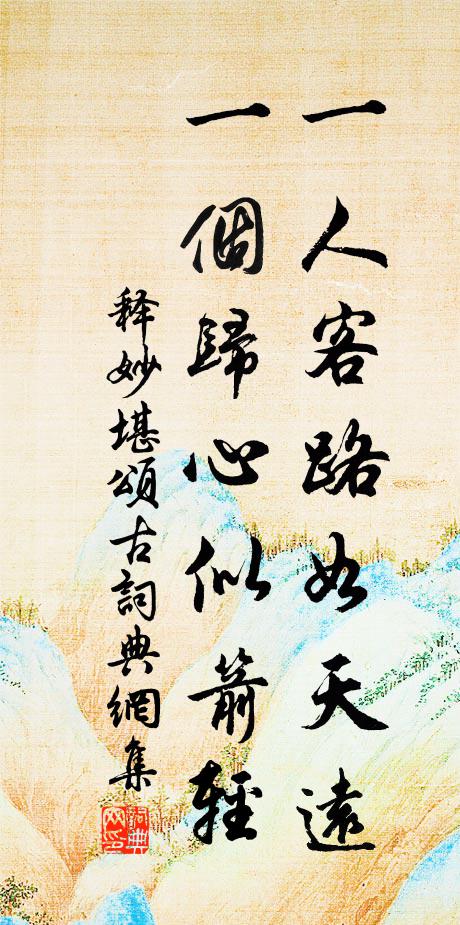 一人客路如天遠
一個歸心似箭輕
释妙堪頌古詞典網集
詞典
网印